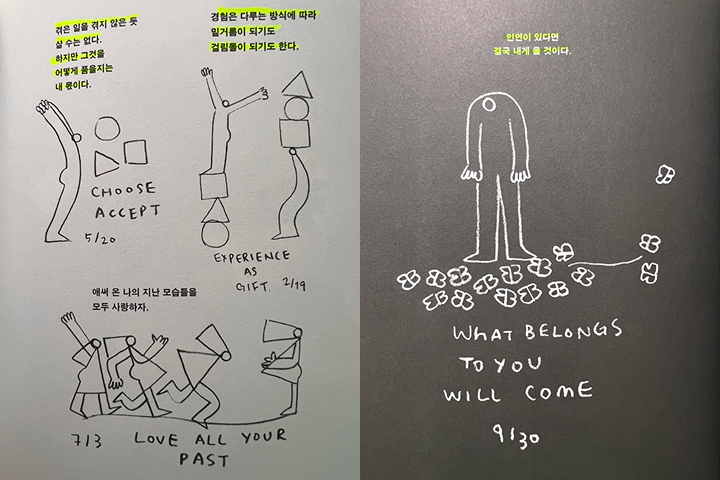 겪은 일을 겪지 않은 듯
살 수는 없다.
하지만 그것을
어떻게 품을지는
내 몫이다.
CHOOSE
ACCEPT
5/20
경험은 다루는 방식에 따라
밑거름이 되기도
걸림돌이 되기도 한다.
EXPERIENCE
AS
GIFT. 2/19
애써 온 나의 지난 모습들을
모두 사랑하자.
7/3 LOVE ALL YOUR
PAST
인연이 있다면
결국 내게 올 것이다.
WHAT BELONGS
TO YOU
WILL COME
9/30